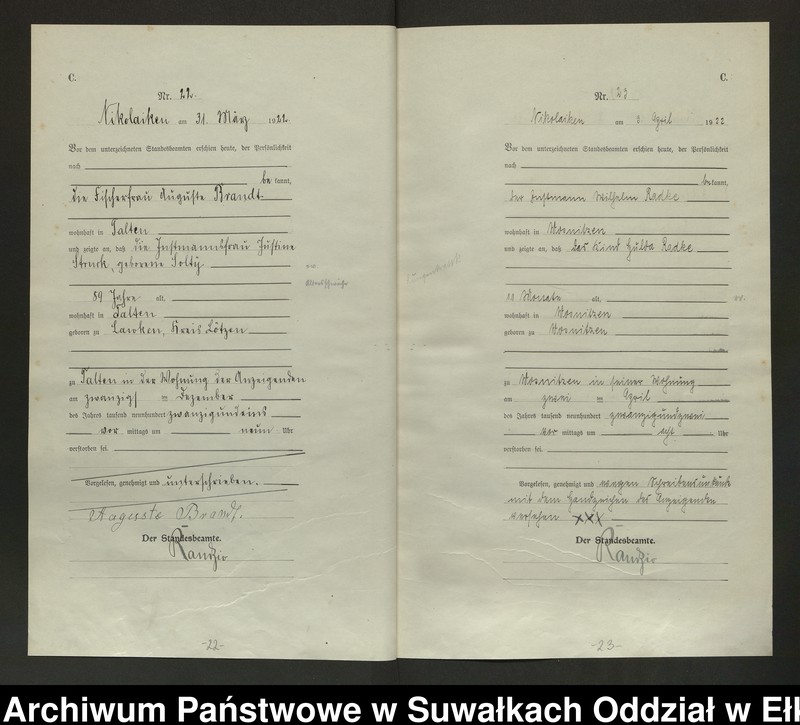 C.
Nr. 22.
Nikolaiken am 31. März 1922
Vor dem unterzeichneten Standesbeamten erschien heute, der Persönlichkeit
nach
bekannt,
die Fischerfrau Auguste Brandt
wohnhaft in Talten
und zeigte an, daß die Instmannsfrau Justine
Struck, geborene
Altersschwäche
89 Jahre alt,
wohnhaft in Talten
geboren zu Lawken, Kreis Lötzen
zu Talten in der Wohnung der Anzeigenden
am zwanzigsten Dezember
des Jahres tausend neunhundert zwanzigundeins
vor mittags um neun Uhr
verstorben sei.
Vorgelesen, genehmigt und unterschrieben.
Auguste Brandt.
Der Standesbeamte.
-22-
C.
Nr. 23
Nikolaiken am 3 April 1922
Vor dem unterzeichneten Standesbeamten erschien heute, der Persönlichkeit
nach
bekannt,
der Instmann Wilhelm Radke
wohnhaft in Wosnitzen
und zeigte an, daß das Kind Hulda Radke
Monate alt,
wohnhaft in Wosnitzen
geboren zu Wosnitzen
zu Wosnitzen in seiner Wohnung
am zwei April
des Jahres tausend neunhundert zwanzigundzwei
vor mittags um acht Uhr
verstorben sei.
Vorgelesen, genehmigt und wegen Schreibensunkunde
mit dem Handzeichen des Anzeigenden
versehen XXX
Der Standesbeamte.
-23-
Archiwum Państwowe w Suwałkach Oddział w Eł